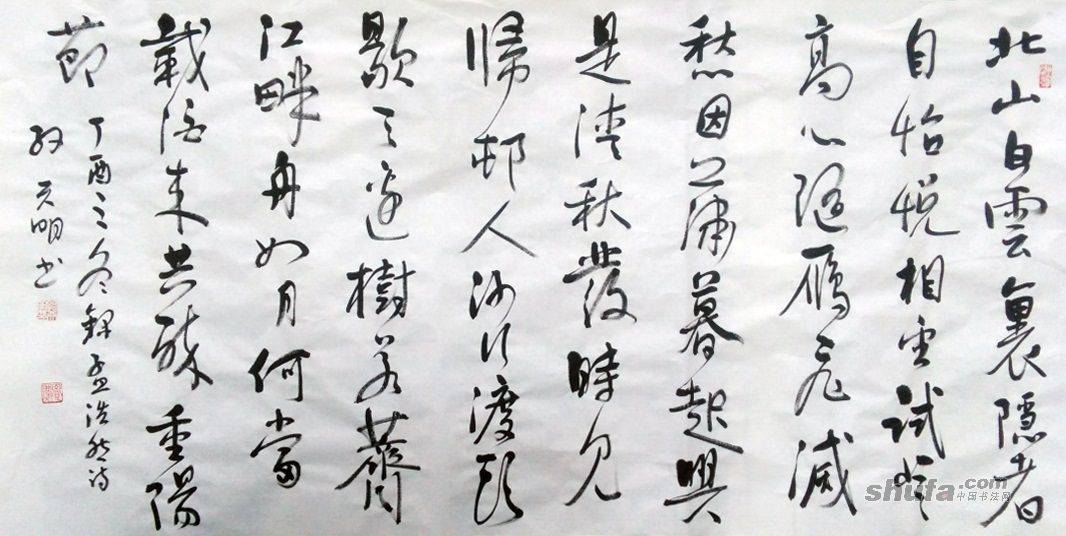 北山白雲裏隱者
自怡悦相望試登
高心隨雁飛滅
愁因薄暮起興
是清秋發時見
歸邨人沙行渡頭
歇天邊樹若薺
江畔舟如月何當
載酒来共醉重陽
節
丁酉之冬錄孟浩然诗
明书
shufa.com
中国书法网